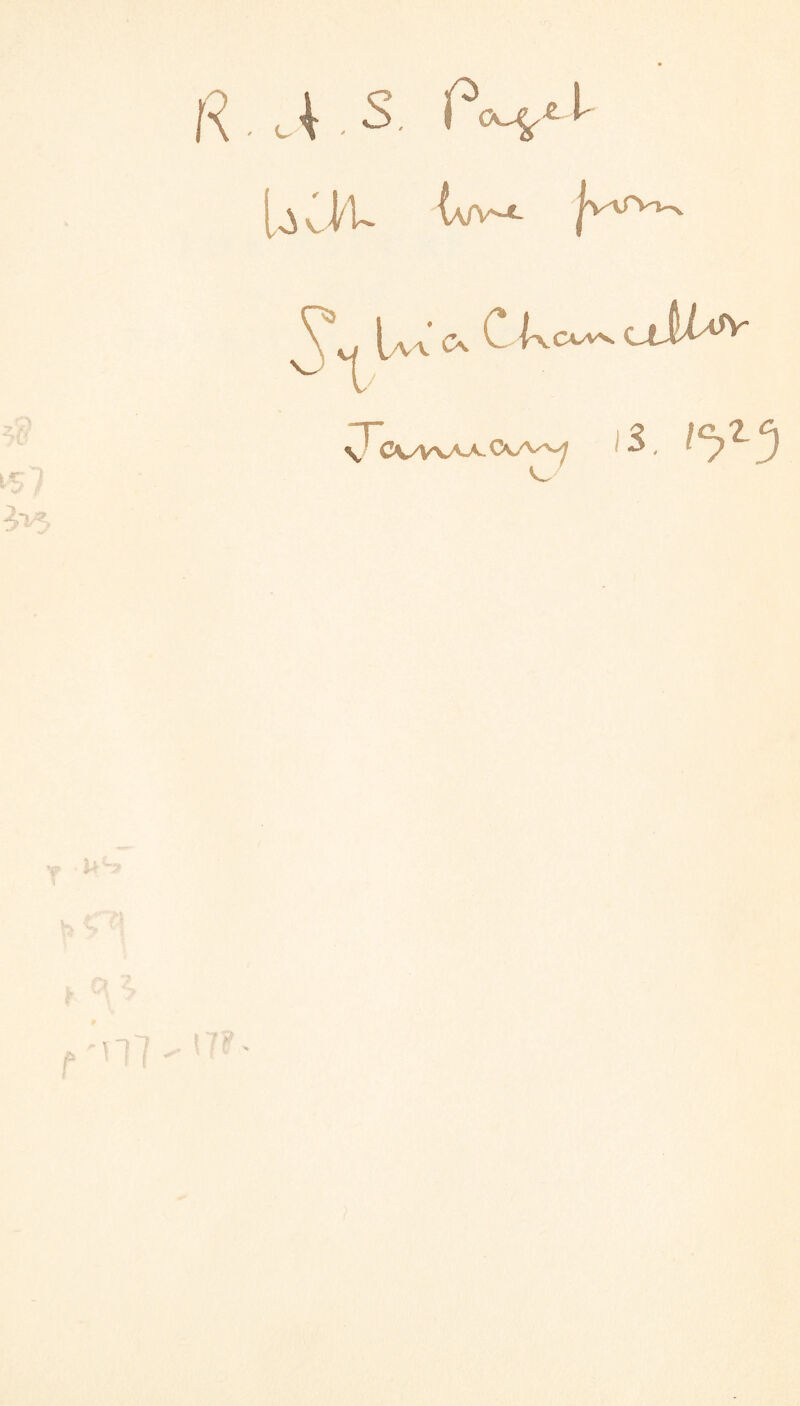 R. A. S. Paget
With love from
Sylvia Chancellor
January 13. 1929
38
157
p 45
p 59
p 93
p 177 - 178.